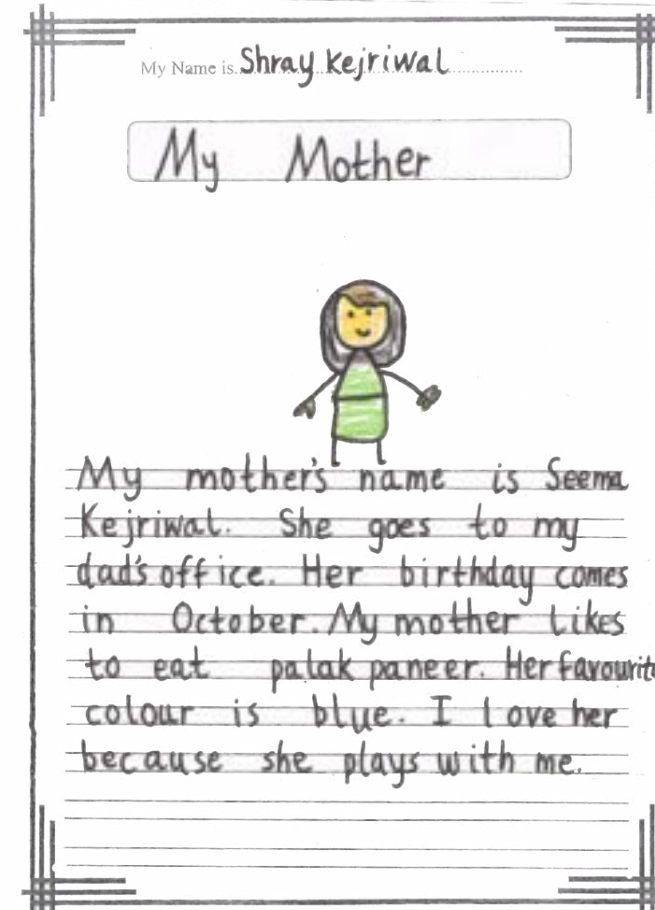 My Name is Shray Kejriwal
My Mother
My mother's name is Seema
Kejriwal. She goes to my
dad's office. Her birthday comes
in October. My mother likes
to eat palak paneer. Her favourite
colour is blue. I love her
because she plays with me.